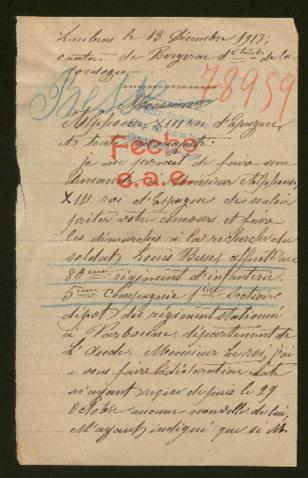 Lembras le 13 Décembre 1917;
canton de Bergerac dépt de la
Dordogne
78959
Besse
Monsieur
Alphonse XIII roi d'Espagne
et toute
Fecho
e.a.e.
Je me permet de faire une
demande Monsieur Alphonse
XIII roi d'Espagne de vouloir
prêter votre concours et faire
les démarches à la recherche du
soldat Louis Besse, affecté au
80ème régiment d'infanterie
5ème Compagnie 1ère section
dépôt du régiment stationné
à Narbonne département de
L'Aude. Monsieur le roi, j'ai
a vous faire déclaration
n'ayant reçu depuis le 29
Octobre aucune nouvelle de lui,
M'ayant indiqué que si M.